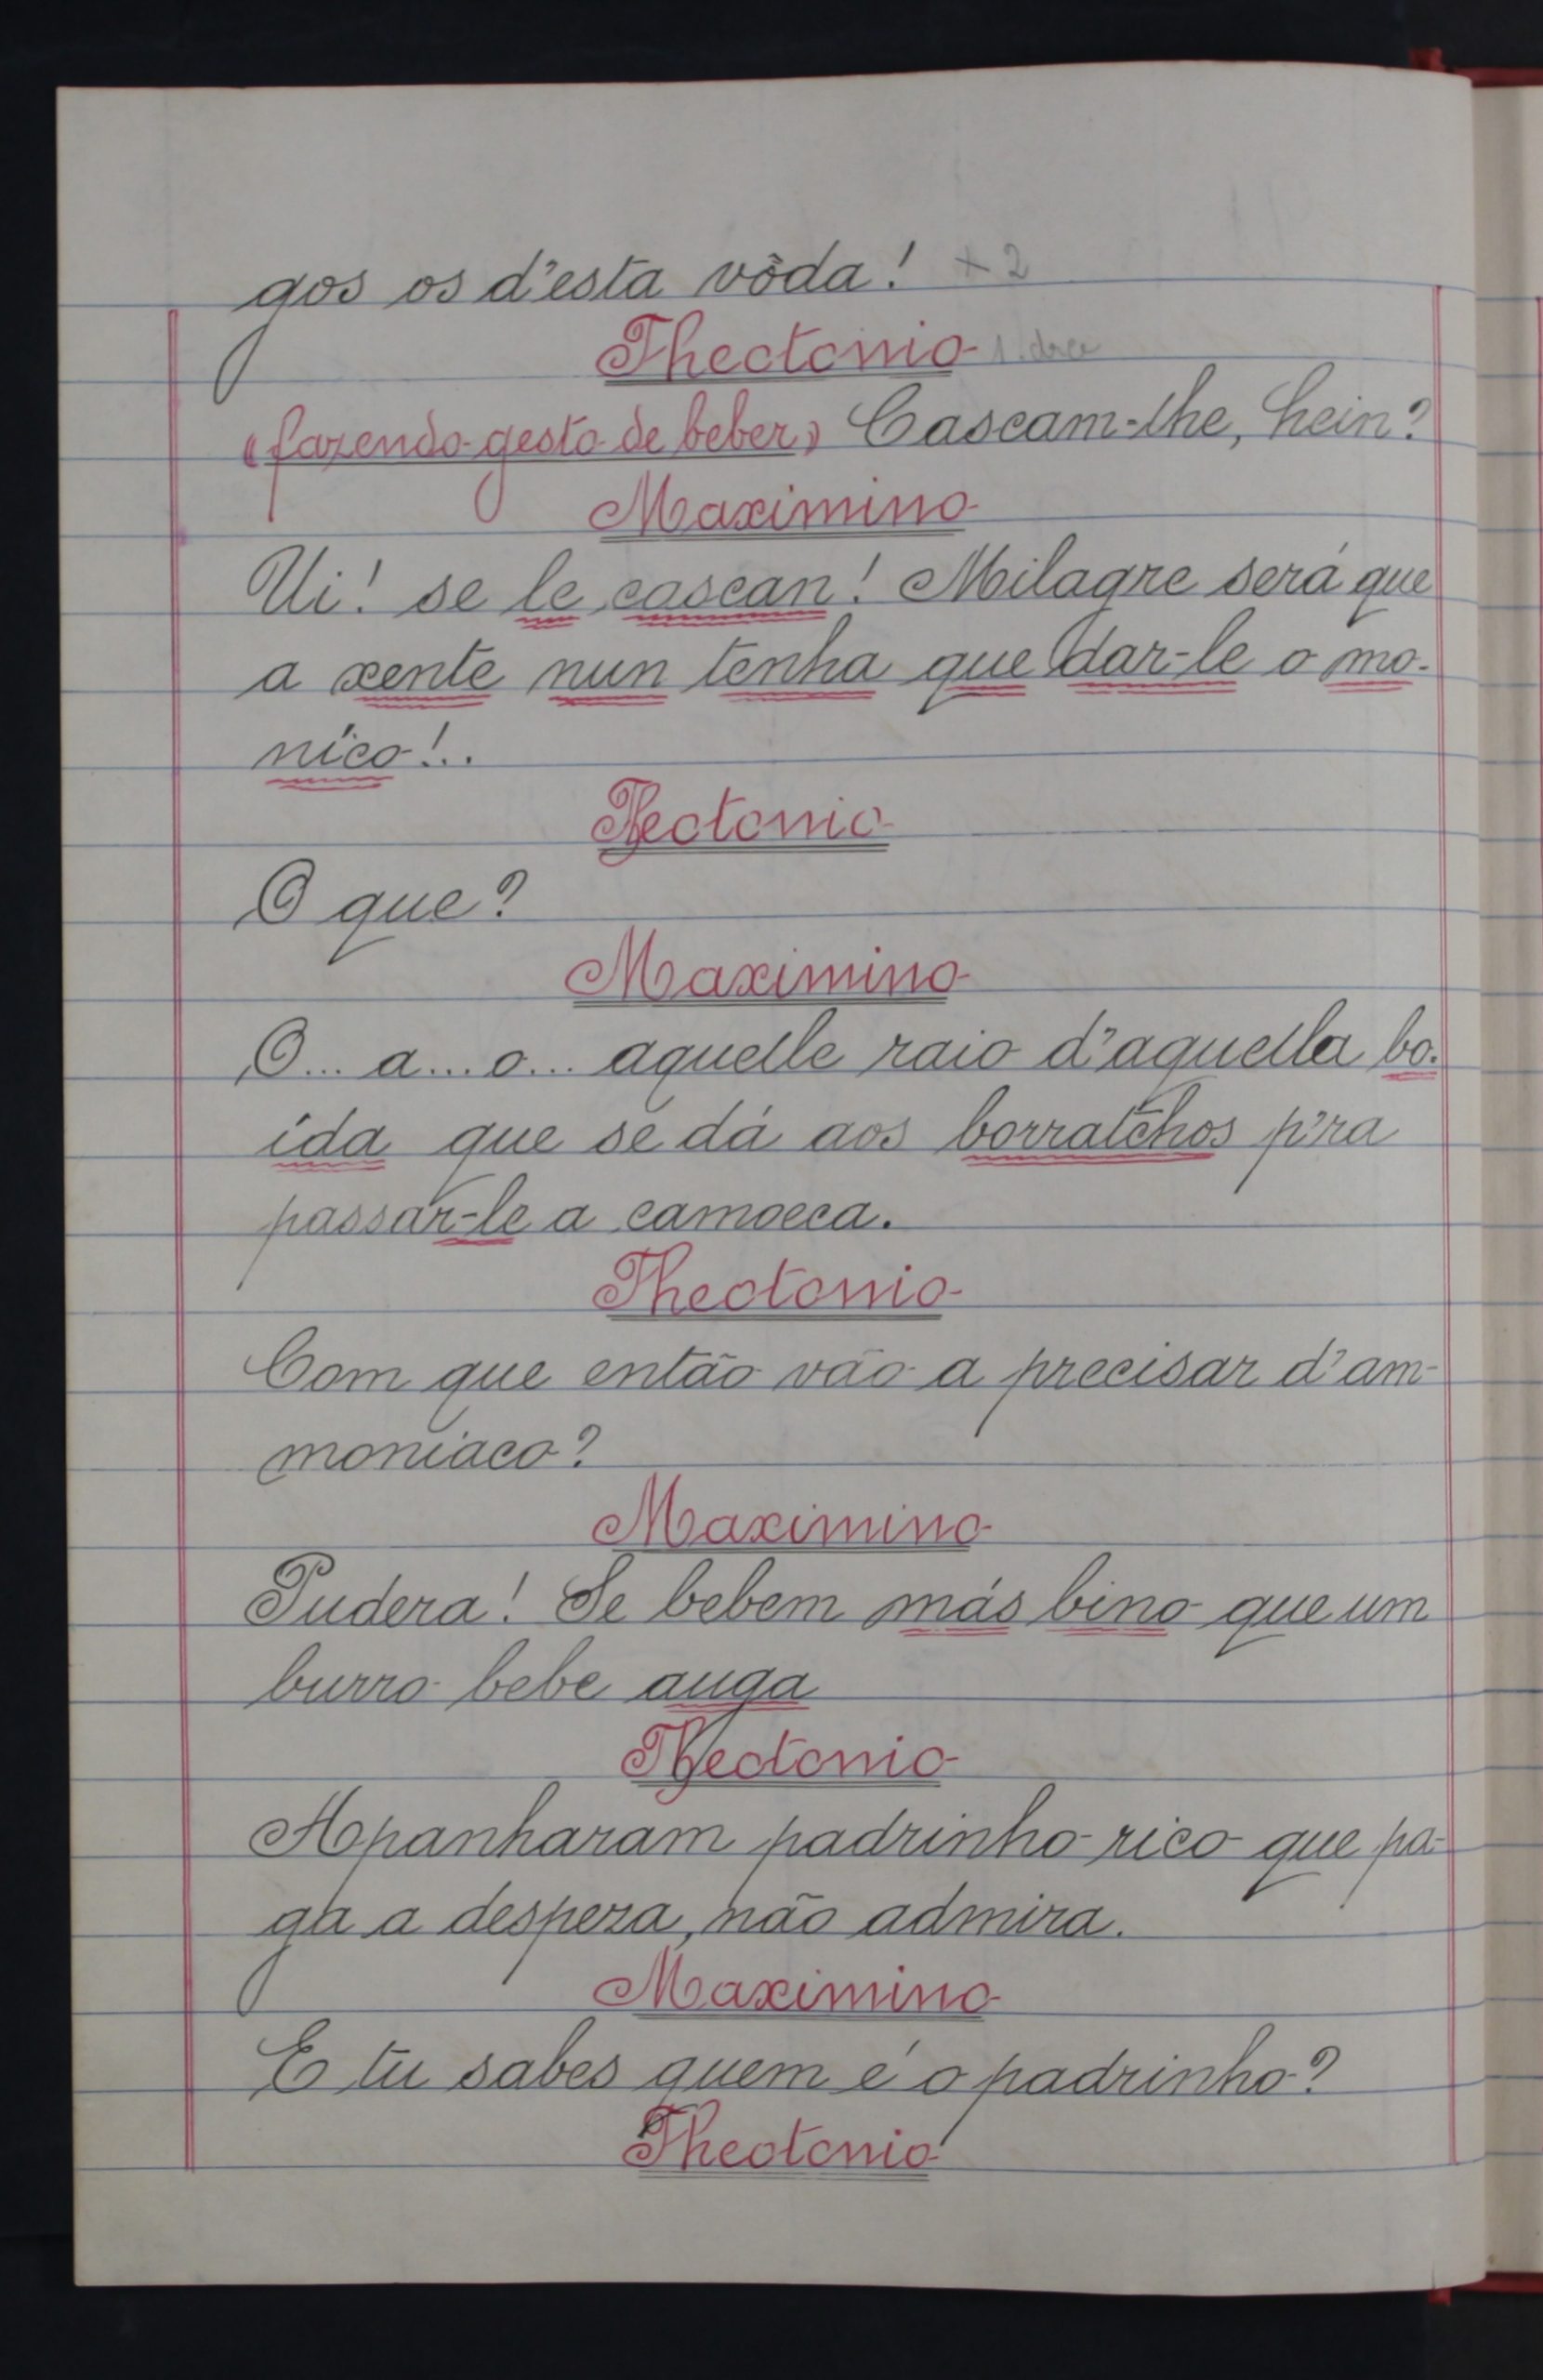 gos os d'esta vôda! + 2
Theotonio
«fazendo gesto de beber» Cascam-lhe, hein?
Maximino
Ui! se le cascan! Milagre será que
a xente nun tenha que dar-le o mo-
níco!..
Theotonio
O que?
Maximino
O... a... o... aquelle raio d'aquella bo-
ída que se dá aos borratchos p'ra
passar-le a camoeca.
Theotonio
Com que então vão a precisar d'am-
moniaco?
Maximino
Pudera! Se bebem más bino que um
burro bebe auga
Theotonio
Apanharam padrinho rico que pa-
ga a despeza, não admira.
Maximino
E tu sabes quem é o padrinho?
Theotonio